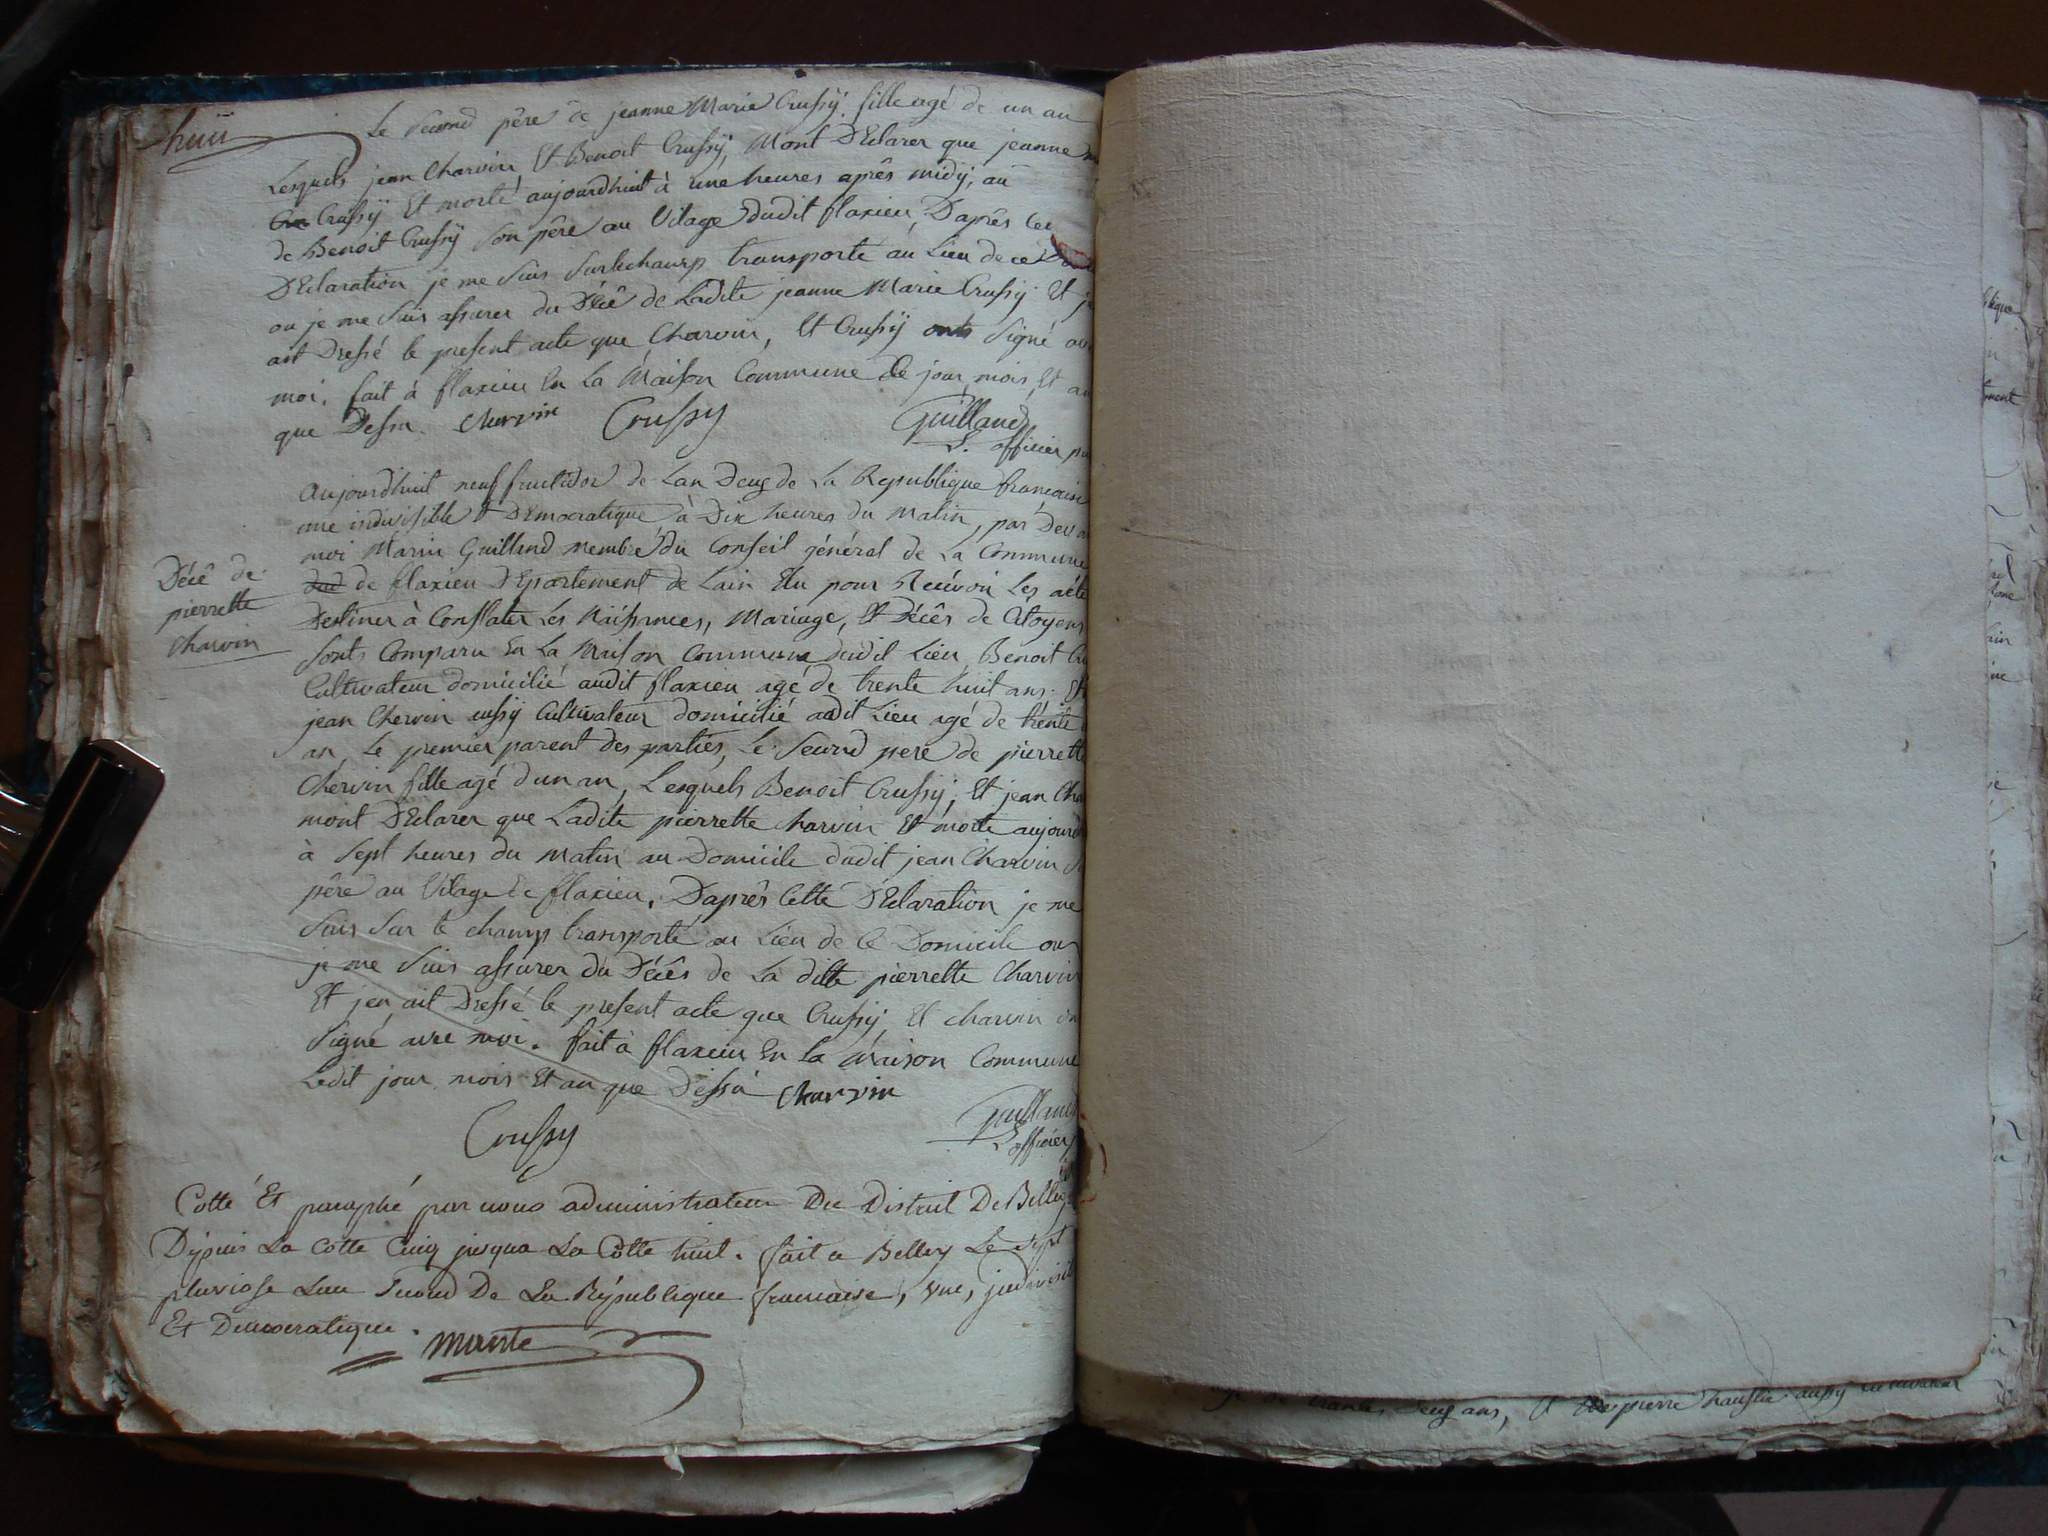 huit
Le second père de jeanne Marie Crussÿ fille agé de un an
Lesquels jean Charvin Et Benoit Crussÿ, Mont DEclarer que jeanne
Crussÿ Et morte aujourdhuit à une heures après midÿ, au
de Benoit Crussÿ son père au Vilage dudit flaxieu, Daprès
DEclaration je me suis surlechamp transporté au Lieu de ce
ou je me suis assurer du Décê de Ladite jeanne Marie Crussÿ Et
ait Dressé le present acte que Charvin, Et Crussÿ onts signé
moi. fait à flaxieu En La Maison Commune de jour mois Et
que Dessu. Charvin Crussy Guilland
L. officier
Aujourdhuit neuf fructidor de Lan Deux de La Republique francaise
une indivisible Et DEmocratique à Dix heures du Matin, par Deva
moi Marin Guilland membre du Conseil général de La Commune
Décê de
pierrette
Charvin
dud de flaxieu DEpartement de Lain Elu pour Recevoir Les acte
Destiner à Constater Les Naissances, Mariage, Et Décês de Citoyens
Sonts Comparu En La Maison Commune dudit Lieu Benoit
Cultivateur domicilié audit flaxieu agé de trente huit ans. Et
jean Chervin aussÿ Cultivateur domicilié audit Lieu agé de trente
an Le premier parent des parties, Le second pere de pierrette
Chervin fille agé dun an, Lesquels Benoit Crussÿ, Et jean Cha
mont DEclarer que Ladite pierrette Charvin Et morte aujourd
à Sept heures du Matin au Domicile dudit jean Charvin
père au Vilage de flaxieu. Daprès Cette DEclaration je me
suis sur le champ transporté au Lieu de Ce Domicile ou
je me suis assurer du Décês de La dite pierrette Charvin
Et jen ait Dressé le present acte que Crussÿ, Et charvin
signé avec moi. fait à flaxieu En La Maison Commune
Ledit jour mois Et an que Dessu Charvin
Crussy Guilland
L officier
Cotté Et paraphé par nous administrateur Du District De Belley
Dépuis La Cotte Cinq jusqua La Cotte huit. fait a Belley Le sept
pluviose Lan Second De La République francaise, une, indivisible
Et Démocratique.